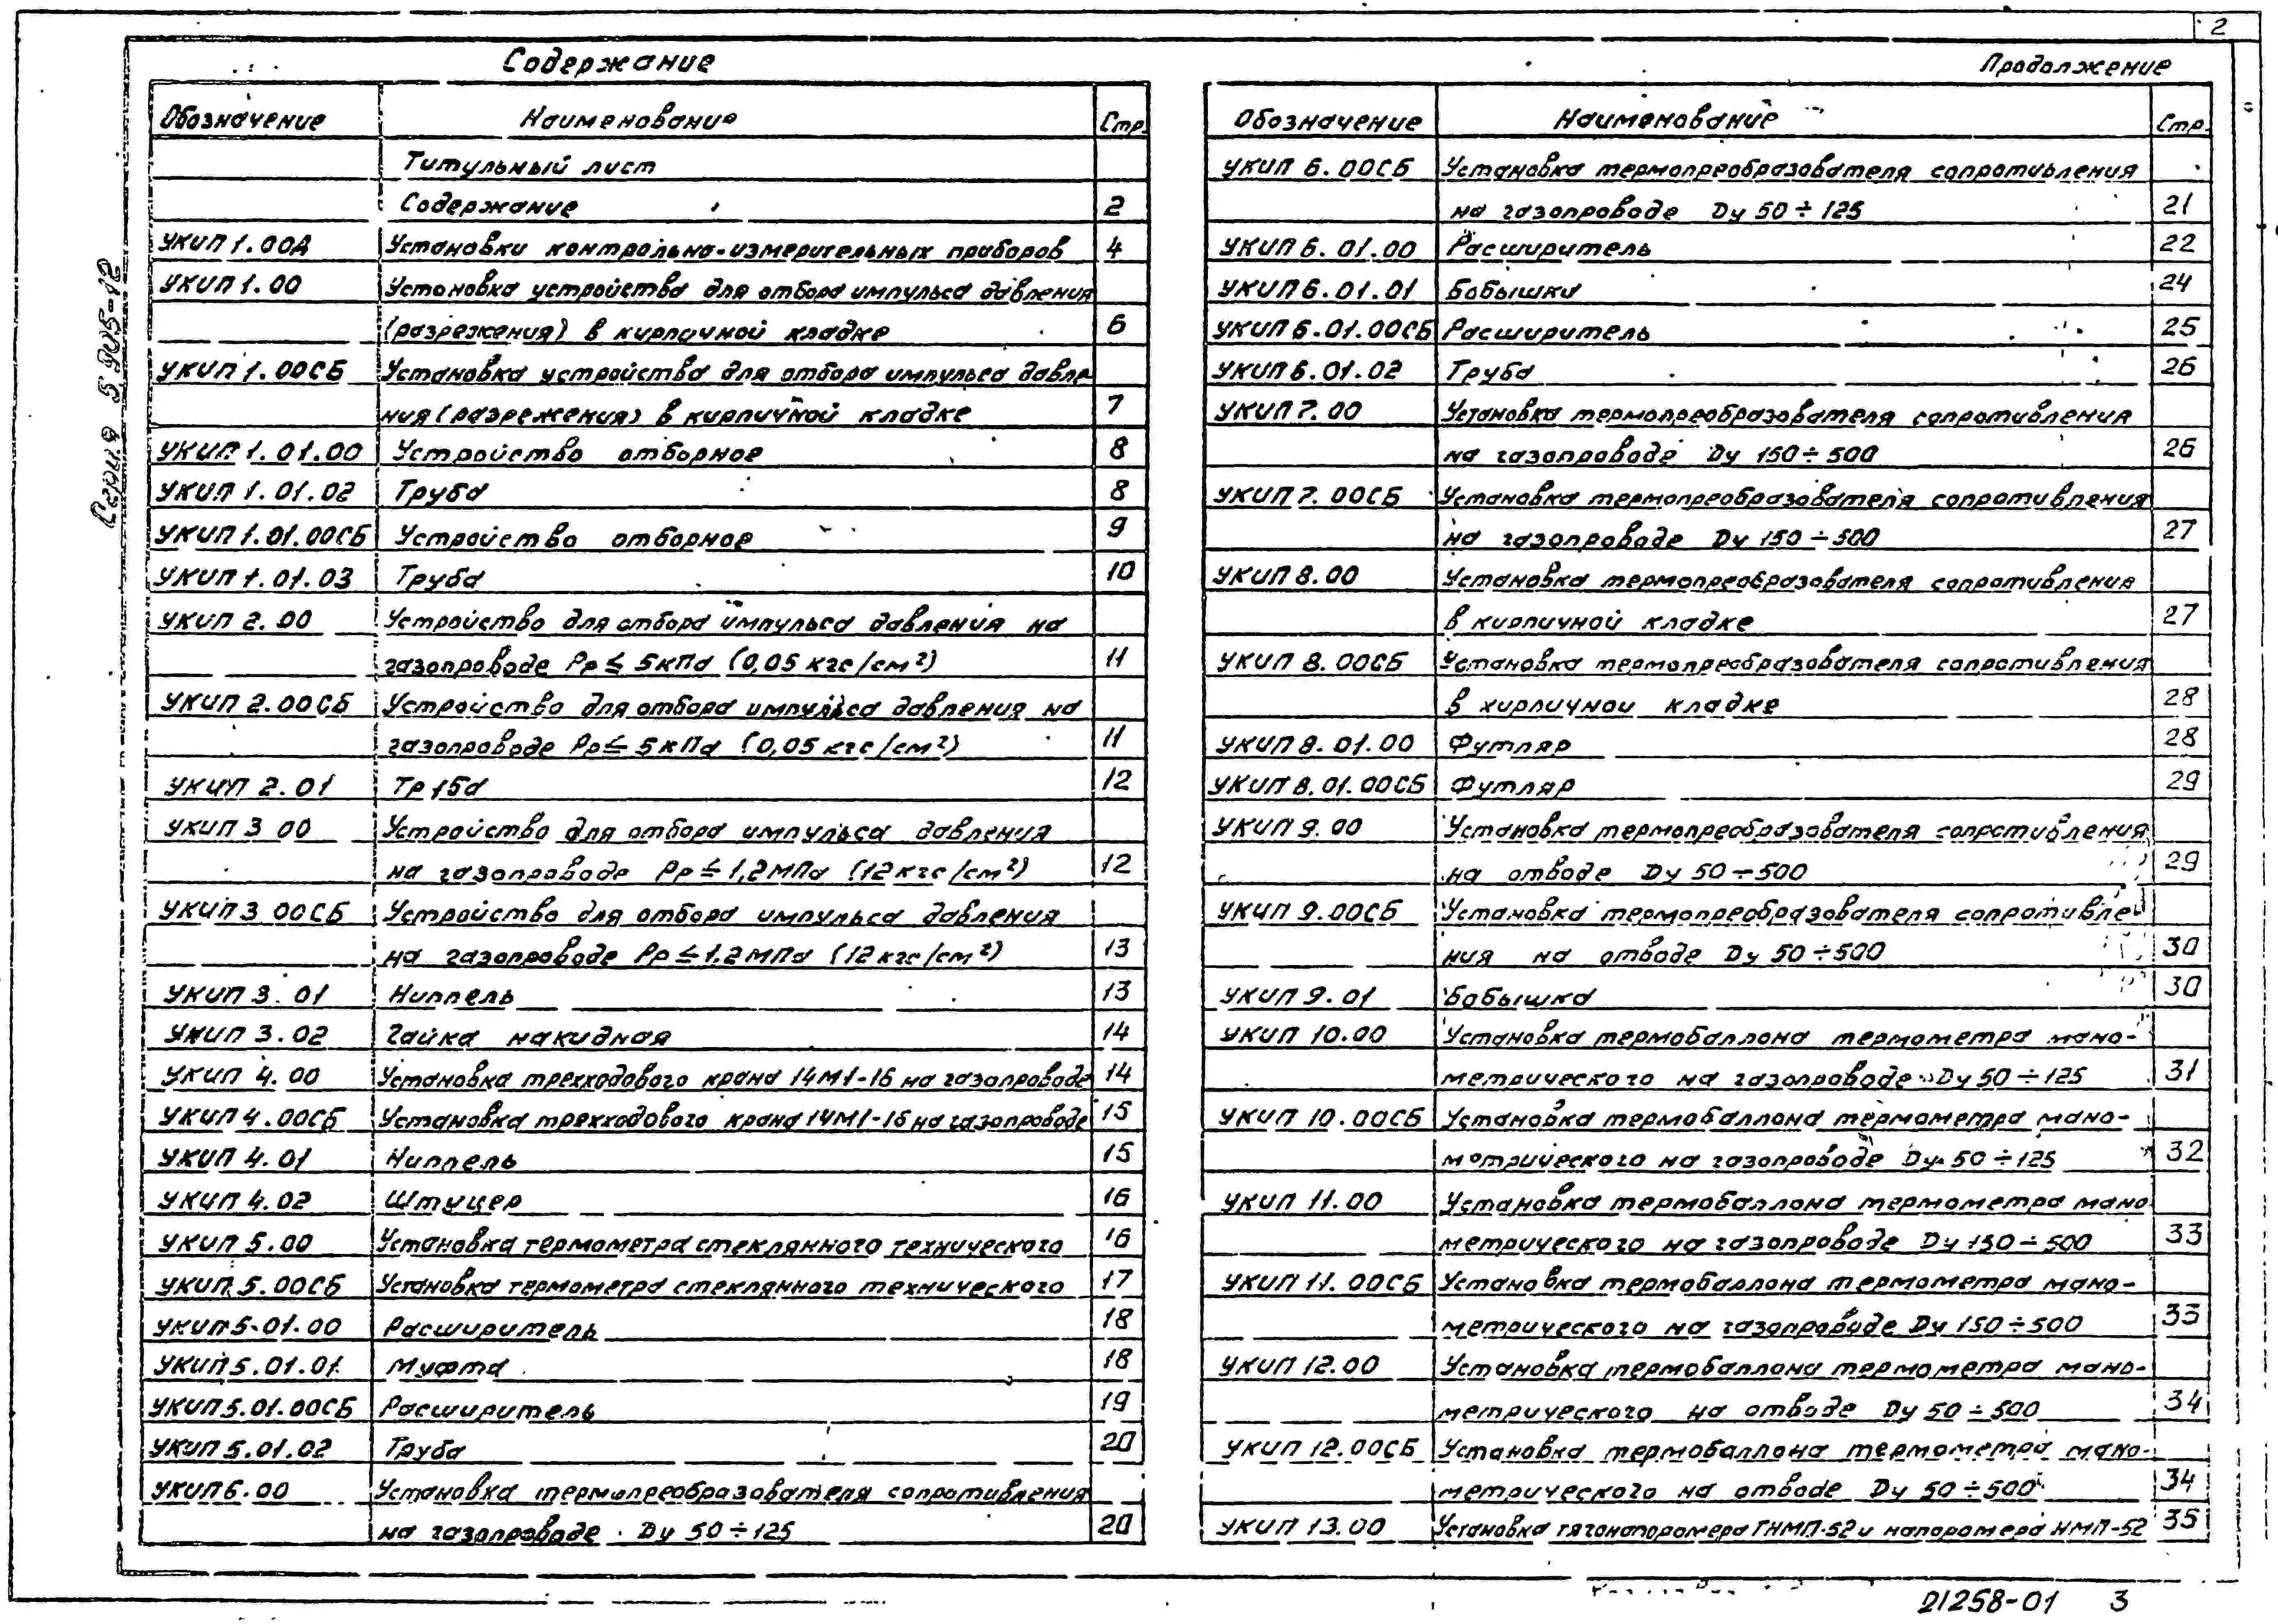 2
Содержание
Обозначение Наименование Стр.
Титульный лист
Содержание 2
УКИП 1.00Д Установки контрольно-измерительных приборов 4
УКИП 1.00 Установка устройства для отбора импульса давления
(разрежения) в кирпичной кладке 6
УКИП 1.00СБ Установка устройства для отбора импульса давле
ния (разрежения) в кирпичной кладке 7
УКИП 1.01.00 Устройство отборное 8
УКИП 1.01.02 Труба 8
УКИП 1.01.00СБ Устройство отборное 9
УКИП 1.01.03 Труба 10
УКИП 2.00 Устройство для отбора импульса давления на
газопроводе Рр ≤ 5кПа (0,05 кгс/см²) 11
УКИП 2.00СБ Устройство для отбора импульса давления на
газопроводе Рр ≤ 5кПа (0,05 кгс/см²) 11
УКИП 2.01 Труба 12
УКИП 3 00 Устройство для отбора импульса давления
на газопроводе Рр ≤ 1,2МПа (12 кгс/см²) 12
УКИП 3 00СБ Устройство для отбора импульса давления
на газопроводе Рр ≤ 1.2МПа (12 кгс/см²) 13
УКИП 3.01 Ниппель 13
УКИП 3.02 Гайка накидная 14
УКИП 4.00 Установка трехходового крана 14М1-16 на газопроводе 14
УКИП 4.00СБ Установка трехходового крана 14М1-16 на газопроводе 15
УКИП 4.01 Ниппель 15
УКИП 4.02 Штуцер 16
УКИП 5.00 Установка термометра стеклянного технического 16
УКИП 5.00СБ Установка термометра стеклянного технического 17
УКИП 5.01.00 Расширитель 18
УКИП 5.01.01 Муфта 18
УКИП 5.01.00СБ Расширитель 19
УКИП 5.01.02 Труба 20
УКИП 6.00 Установка термопреобразователя сопротивления
на газопроводе Dу 50÷125 20
Продолжение
Обозначение Наименование Стр.
УКИП 6.00СБ Установка термопреобразователя сопротивления
на газопроводе Dу 50÷125 21
УКИП 6.01.00 Расширитель 22
УКИП 6.01.01 Бобышки 24
УКИП 6.01.00СБ Расширитель 25
УКИП 6.01.02 Труба 26
УКИП 7.00 Установка термопреобразователя сопротивления
на газопроводе Dу 150÷500 26
УКИП 7.00СБ Установка термопреобразователя сопротивления
на газопроводе Dу 150÷500 27
УКИП 8.00 Установка термопреобразователя сопротивления
в кирпичной кладке 27
УКИП 8.00СБ Установка термопреобразователя сопротивления
в кирпичной кладке 28
УКИП 8.01.00 Футляр 28
УКИП 8.01.00СБ Футляр 29
УКИП 9.00 Установка термопреобразователя сопротивления
на отводе Dу 50÷500 29
УКИП 9.00СБ Установка термопреобразователя сопротивле
ния на отводе Dу 50÷500 30
УКИП 9.01 Бобышка 30
УКИП 10.00 Установка термобаллона термометра мано-
метрического на газопроводе Dу 50÷125 31
УКИП 10.00СБ Установка термобаллона термометра мано-
метрического на газопроводе Dу 50÷125 32
УКИП 11.00 Установка термобаллона термометра мано
метрического на газопроводе Dу 150÷500 33
УКИП 11.00СБ Установка термобаллона термометра мано-
метрического на газопроводе Dу 150÷500 33
УКИП 12.00 Установка термобаллона термометра мано-
метрического на отводе Dу 50÷500 34
УКИП 12.00СБ Установка термобаллона термометра мано-
метрического на отводе Dу 50÷500 34
УКИП 13.00 Установка тягонапоромера ТНМП-52 и напоромера НМП-52 35
Серия 5.905-12
21258-01 3